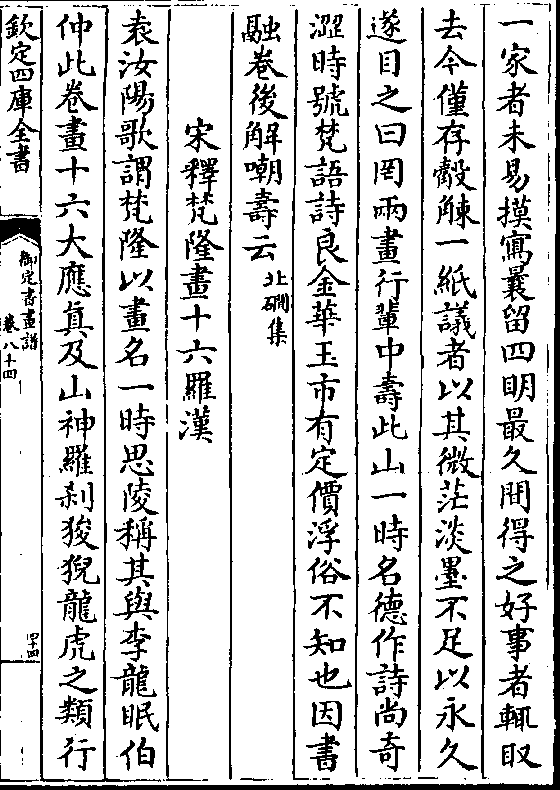 一家者未易摸寫曩留四明最久間得之好事者輒取
去今僅存觳觫一紙議者以其微茫淡墨不足以永久
遂目之曰罔兩畫行輩中壽此山一時名德作詩尚奇
澀時號梵語詩良金華玉市有定價浮俗不知也因書
融卷後解嘲壽云北磵集
宋釋梵隆畫十六羅漢
袁汝陽歌謂梵隆以畫名一時思陵稱其與李龍眠伯
仲此卷畫十六大應真及山神羅刹狻猊龍虎之類行
欽定四庫全書
御定書畫譜
卷八十四
四十四